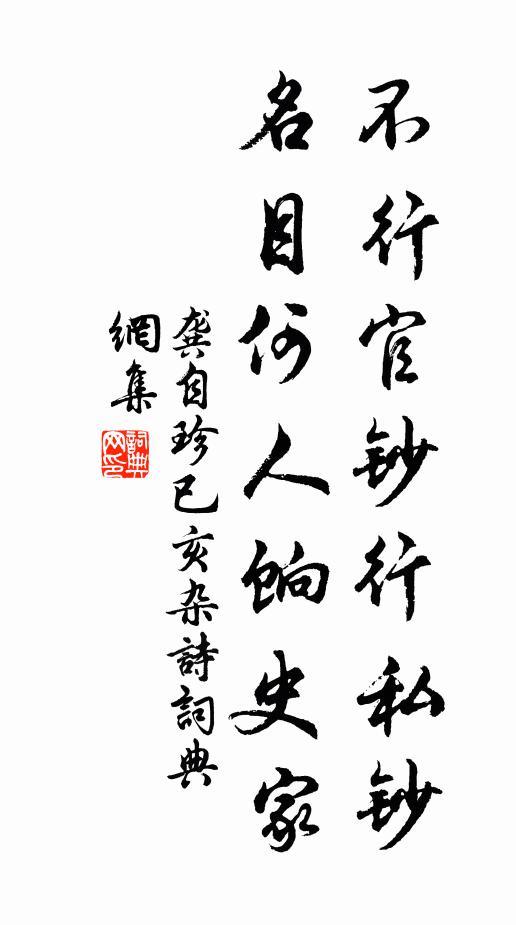 不行官鈔行私鈔
名目何人餉史家
龔自珍己亥杂詩詞典
網集
詞典
网印